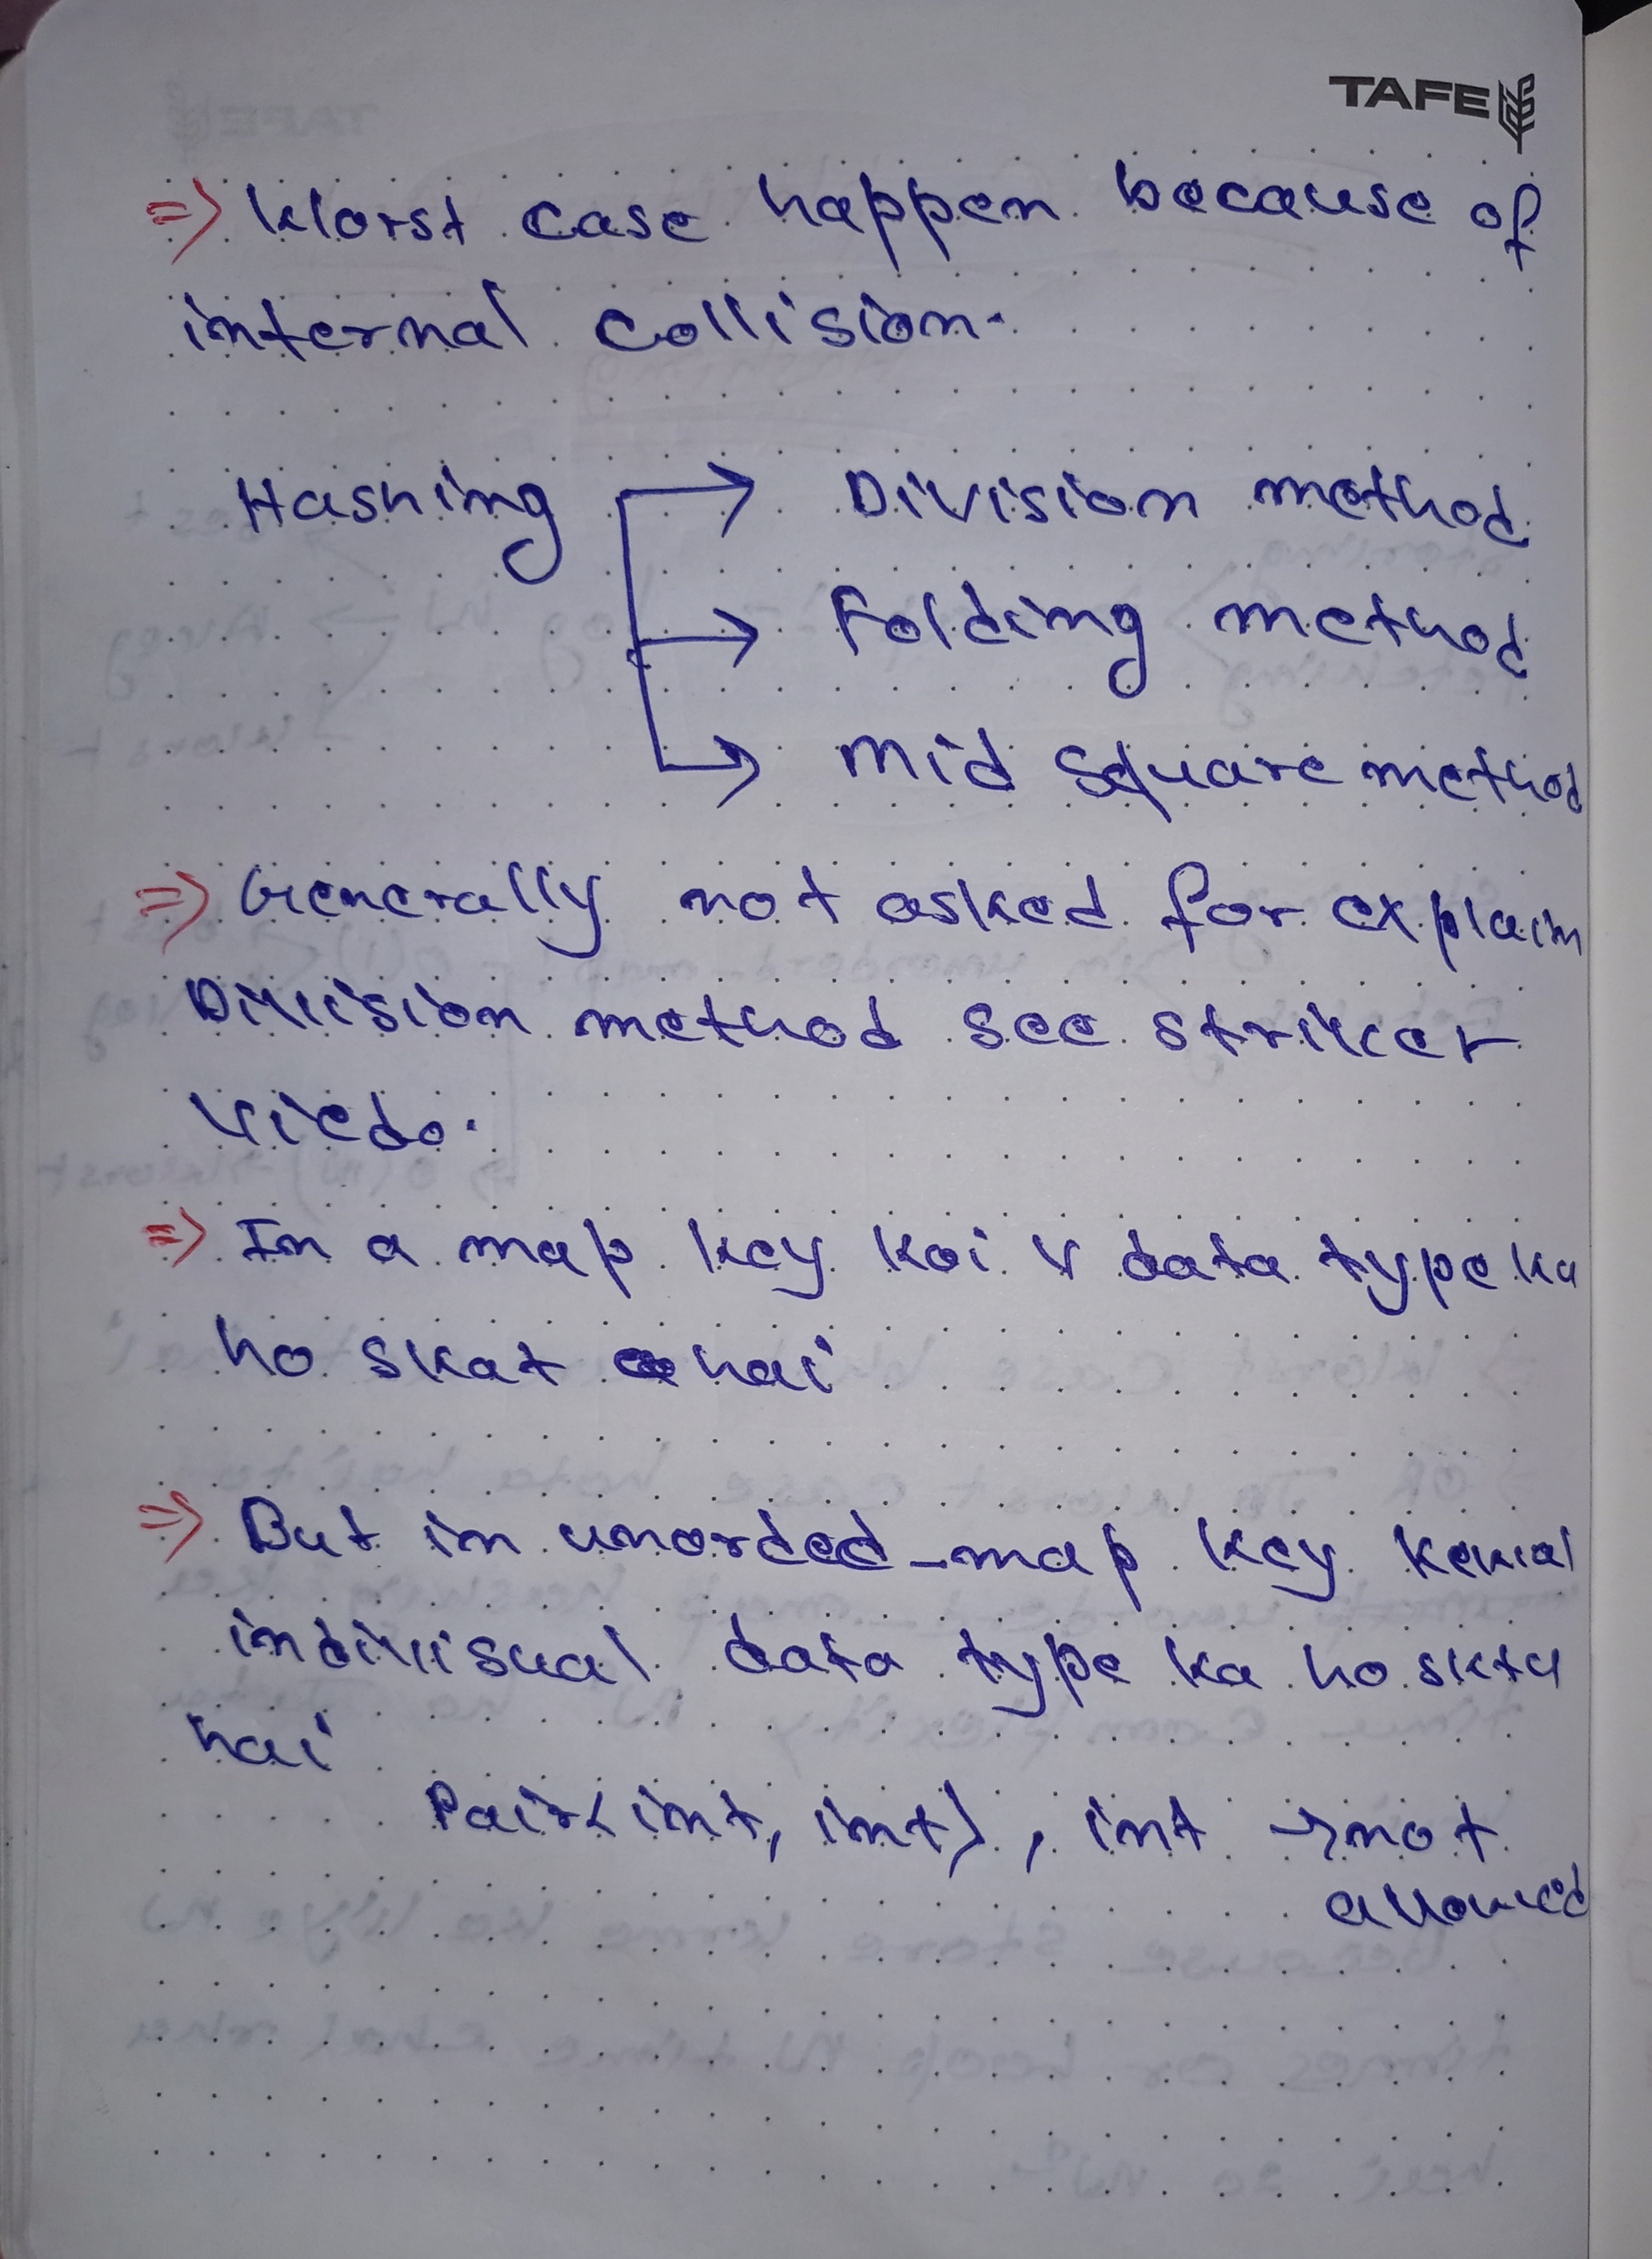 TAFE
=> Worst case happen because of
internal collision.
Hashing → Division method
→ Folding method
→ Mid square method
=> Generally not asked for explain
Division method see striker
viedo.
=> In a map key koi v data type ka
ho skat a hai
=> But in unorded_map key kewal
indivisual data type ka ho skta
hai
Pair<int, int>, int → not
allowed